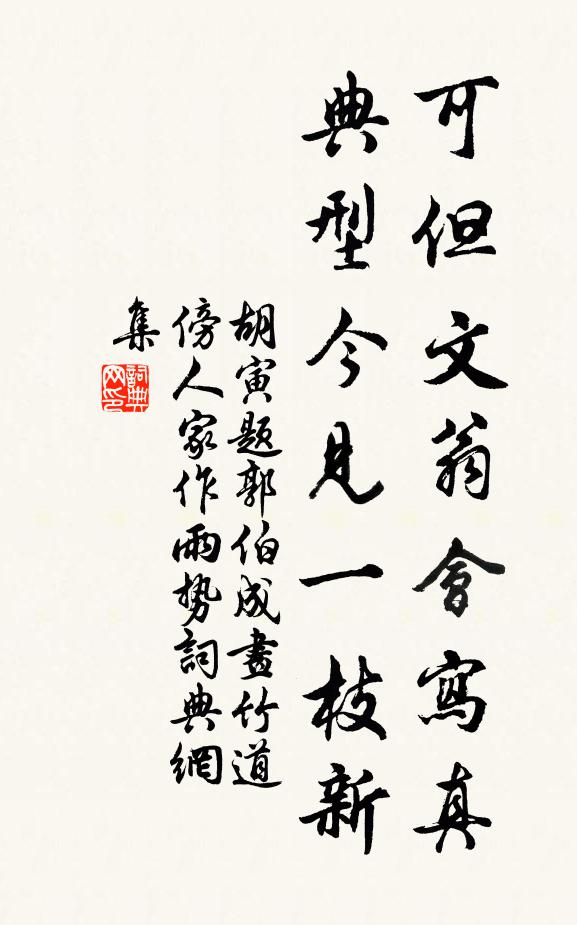 可但文翁會寫真
典型今見一枝新
胡寅題郭伯成畫竹道
傍人家作雨勢詞典網
集
詞典
网印